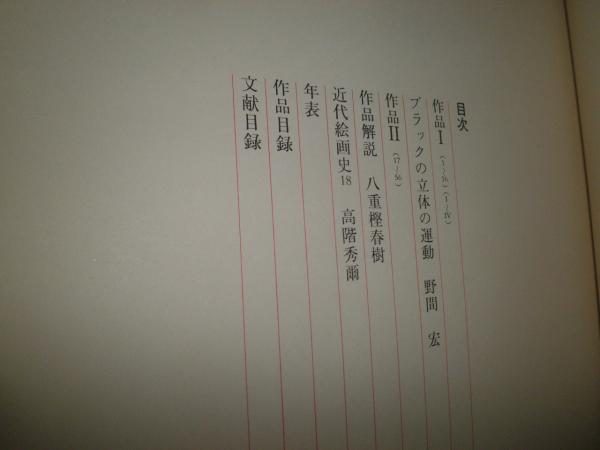 目次
作品Ⅰ（1〜16）（Ⅰ〜Ⅳ）
ブラックの立体の運動　野間　宏
作品Ⅱ（17〜56）
作品解説　八重樫春樹
近代絵画史18　高階秀爾
年表
作品目録
文献目録